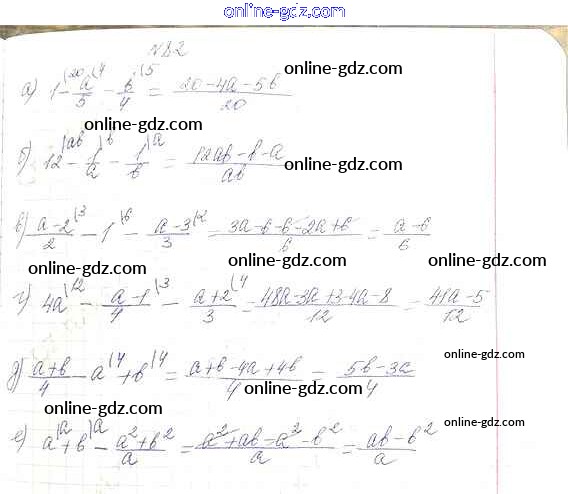 online-gdz.com
№82
а) 1|20 - a/5|4 - b/4|5 = (20-4a-5b)/20
online-gdz.com
online-gdz.com
б) 12|ab - 1/a|b - 1/b|a = (12ab-b-a)/ab
online-gdz.com
в) (a-2)/2|3 - 1|6 - (a-3)/3|2 = (3a-6-6-2a+6)/6 = (a-6)/6
online-gdz.com online-gdz.com online-gdz.com
г) 4a|12 - (a-1)/4|3 - (a+2)/3|4 = (48a-3a+3-4a-8)/12 = (41a-5)/12
online-gdz.com
д) (a+b)/4 - a|4 + b|4 = (a+b-4a+4b)/4 = (5b-3a)/4
online-gdz.com
online-gdz.com
online-gdz.com
е) a|a + b|a - (a²+b²)/a = (a²+ab-a²-b²)/a = (ab-b²)/a
online-gdz.com